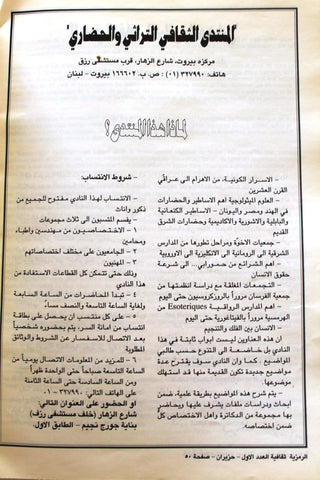 "المنتدى الثقافي التراثي والحضاري"
مركزه بيروت، شارع الزهار، قرب مستشفى رزق
هاتف: ٣٢٧٩٩٠ (٠١) : ص.ب: ١٦٦٦٠٢ بيروت - لبنان
لماذا هذا المنتدى؟
- شروط الانتساب:
- الانتساب لهذا النادي مفتوح للجميع من
ذكور واناث
- يقسم المنتسبون الى ثلاث مجموعات
١ - الاختصاصيون من مهندسين واطباء
ومحامين
٢ - الجامعيون على مختلف اختصاصاتهم
٣ - المهنيون
وذلك حتى تتمكن كل القطاعات الاستفادة من
هذا النادي
٤ - تبدأ المحاضرات من الساعة السابعة
ولغاية الساعة التاسعة والنصف مساءً
٥ - على كل منتسب ان يحصل على بطاقة
انتساب من امانة السر، يتم بحضوره شخصياً
بعد الاتصال للاستفسار عن الشروط والوثائق
المطلوبة
٦ - للمزيد من المعلومات الاتصال يومياً من
الساعة التاسعة صباحاً حتى الواحدة ظهراً
ومن الساعة السادسة حتى الساعة الثامنة
على الرقم: ٣٢٧٩٩٠ - ٠١
او الحضور على العنوان التالي:
شارع الزهار (خلف مستشفى رزق)
بناية جورج نجيم - الطابق الاول.
- الاسرار الكونية، من الاهرام الى عرافي
القرن العشرين
- العلوم الميثولوجية اهم الاساطير والحضارات
في الهند ومصر واليونان - الاساطير الكنعانية
والبابلية والاشورية والاكاديمية وحضارات الشرق
والغرب القديمة
- جمعيات الاخوّة ومراحل تطورها من المدارس
الشرقية الى الرومانية الى الانكليزية الى الاوروبية
- اهم الشرائع من حمورابي.. الى شرعة
حقوق الانسان
- التجمعات المغلقة مع دراسة انظمتها من
جمعية الفرسان مروراً بالروزكروسيون حتى اليوم
- اهم المدارس الرواقية Esoteriques من
الهرمسية مروراً بالفيثاغورية حتى اليوم
- الانسان بين الفلك والتنجيم
ان هذه العناوين ليست ابواب ثابتة في هذا
النادي بل خاضعة الى التنوع حسب طالبي
المواضيع. كما وان النادي سوف يقترح عدة
مواضيع جديدة تكون القديمة منها قد استهلك
موضوعها.
- يتم شرح هذه المواضيع بطريقة علمية، ضمن
ابحاث ودراسات وملفات يشرف عليها ويحاضر
بها مجموعة من الدكاترة واهل الاختصاص كل
ضمن اختصاصه.
الرمزية ثقافية العدد الاول - حزيران - صفحة ٥٠